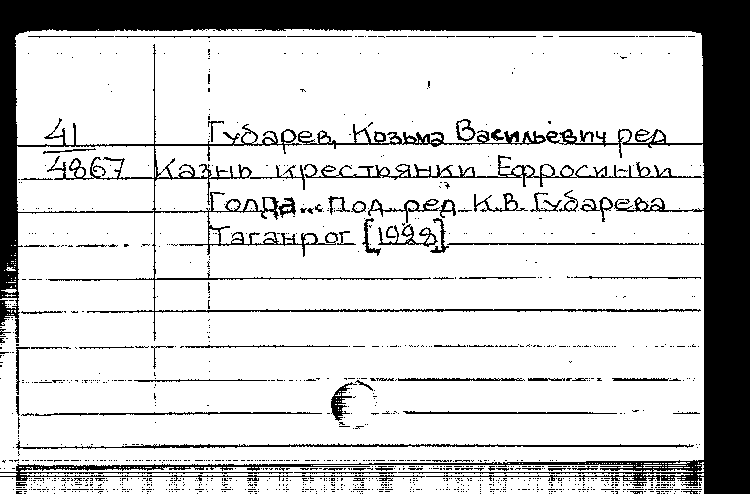 41
4867
Губарев, Козьма Васильевич ред
Казнь крестьянки Ефросиньи
Голда... под ред К.В. Губарева
Таганрог [1928]